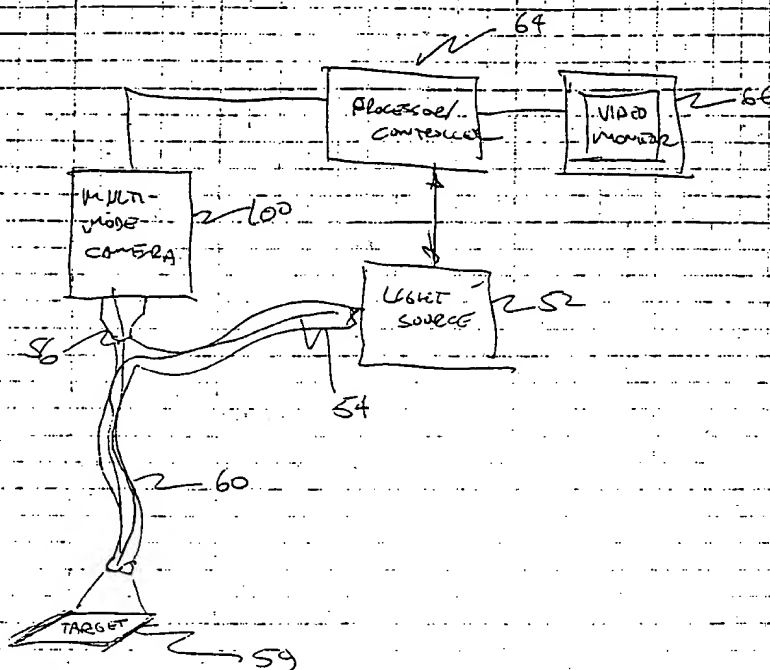 64
PROCESSOR/
CONTROLLER
VIDEO
MONITOR
66
MULTI-
MODE
CAMERA
100
LIGHT
SOURCE
52
56
54
60
TARGET
59